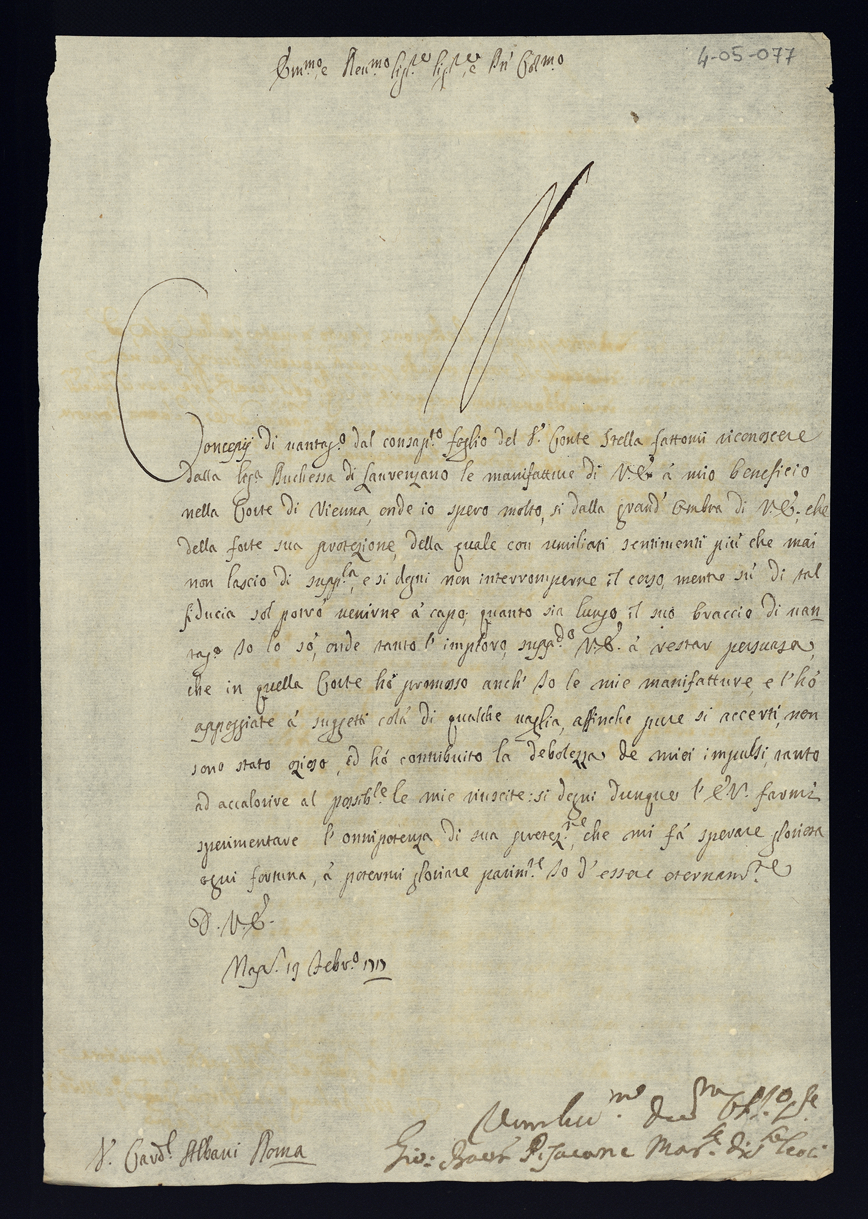 4-05-077
Em.mo e Reu.mo Sig.re Sig.re e Pn' Col.mo
Concepij di uantag.o dal consap.to foglio del S.r Conte Stella fattomi riconoscere
dalla Duchessa di Laurenzano le manifatture di V.E. à mio beneficio
nella Corte di Vienna, onde io spero molto, sì dalla grand' Ombra di V.E., che
della forte sua protezione, della quale con umiliati sentimenti più che mai
non lascio di supp.la, e si degni non interromperne il corso, mentre sù di tal
fiducia sol potrò uenirne à capo; quanto sia lungo il suo braccio di uan
tag.o Io lo sò, onde tanto l' imploro, supp.do V.E. à restar persuasa,
che in quella Corte hò promosso anch' Io le mie manifatture, e l' hò
appoggiate à suggetti colà di qualche uaglia, affinche pure si accerti, non
sono stato ozioso, ed hò contribuito la debolezza de miei impulsi, tanto
ad accalorire al possib.le le mie riuscite: si degni dunque l' E.V. farmi
sperimentare l' onnipotenza di sua protez.ne, che mi fà sperare gloriosa
ogni fortuna, à potermi gloriare parim.te Io d' essere eternam.te
D. V.E.
Nap. 19 Febr.o 1717
S. Card.l Albani Roma
Gio: Batt. Pisacane Mar.se di S. Leoci